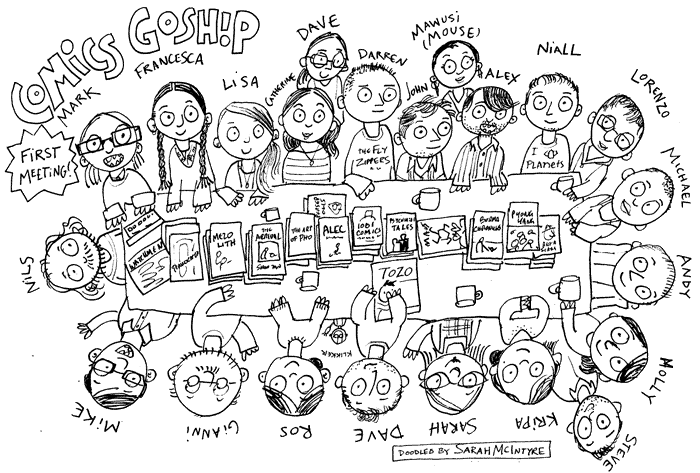 COMICS GOSH!P
FIRST MEETING!
MARK
FRANCESCA
LISA
CATHERINE
DAVE
DARREN
MAWUSI
(MOUSE)
JOHN
ALEX
NIALL
LORENZO
MICHAEL
ANDY
MOLLY
STEVE
KRIPA
SARAH
DAVE
ROS
GIANNI
MIKE
NILS
THE FLY
ZIPPERS
I
PLANETS
MEZO
LITH
THE
ARRIVAL
SHAUN TAN
THE ART
OF PHO
ALEC
1001
COMICS
TALES
BURMA
CHRONICLES
PYONG
YANG
TOZO
KLIKKER
DOODLED BY SARAH MCINTYRE